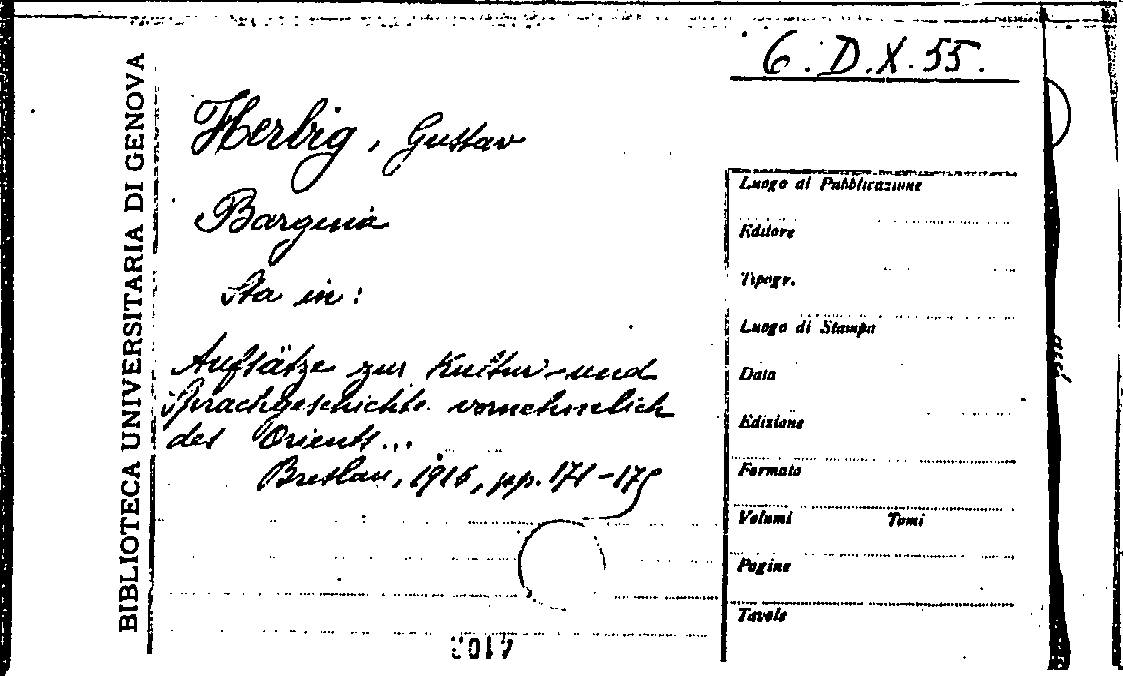 6. D. X. 55.
BIBLIOTECA UNIVERSITARIA DI GENOVA
Herbig, Gustav
Bargina
Sta in:
Aufsätze zur Kultur- und
Sprachgeschichte vornehmlich
des Orients...
Breslau, 1916, pp. 171-175
Luogo di Pubblicazione
Editore
Tipogr.
Luogo di Stampa
Data
Edizione
Formato
Volumi Tomi
Pagine
Tavole